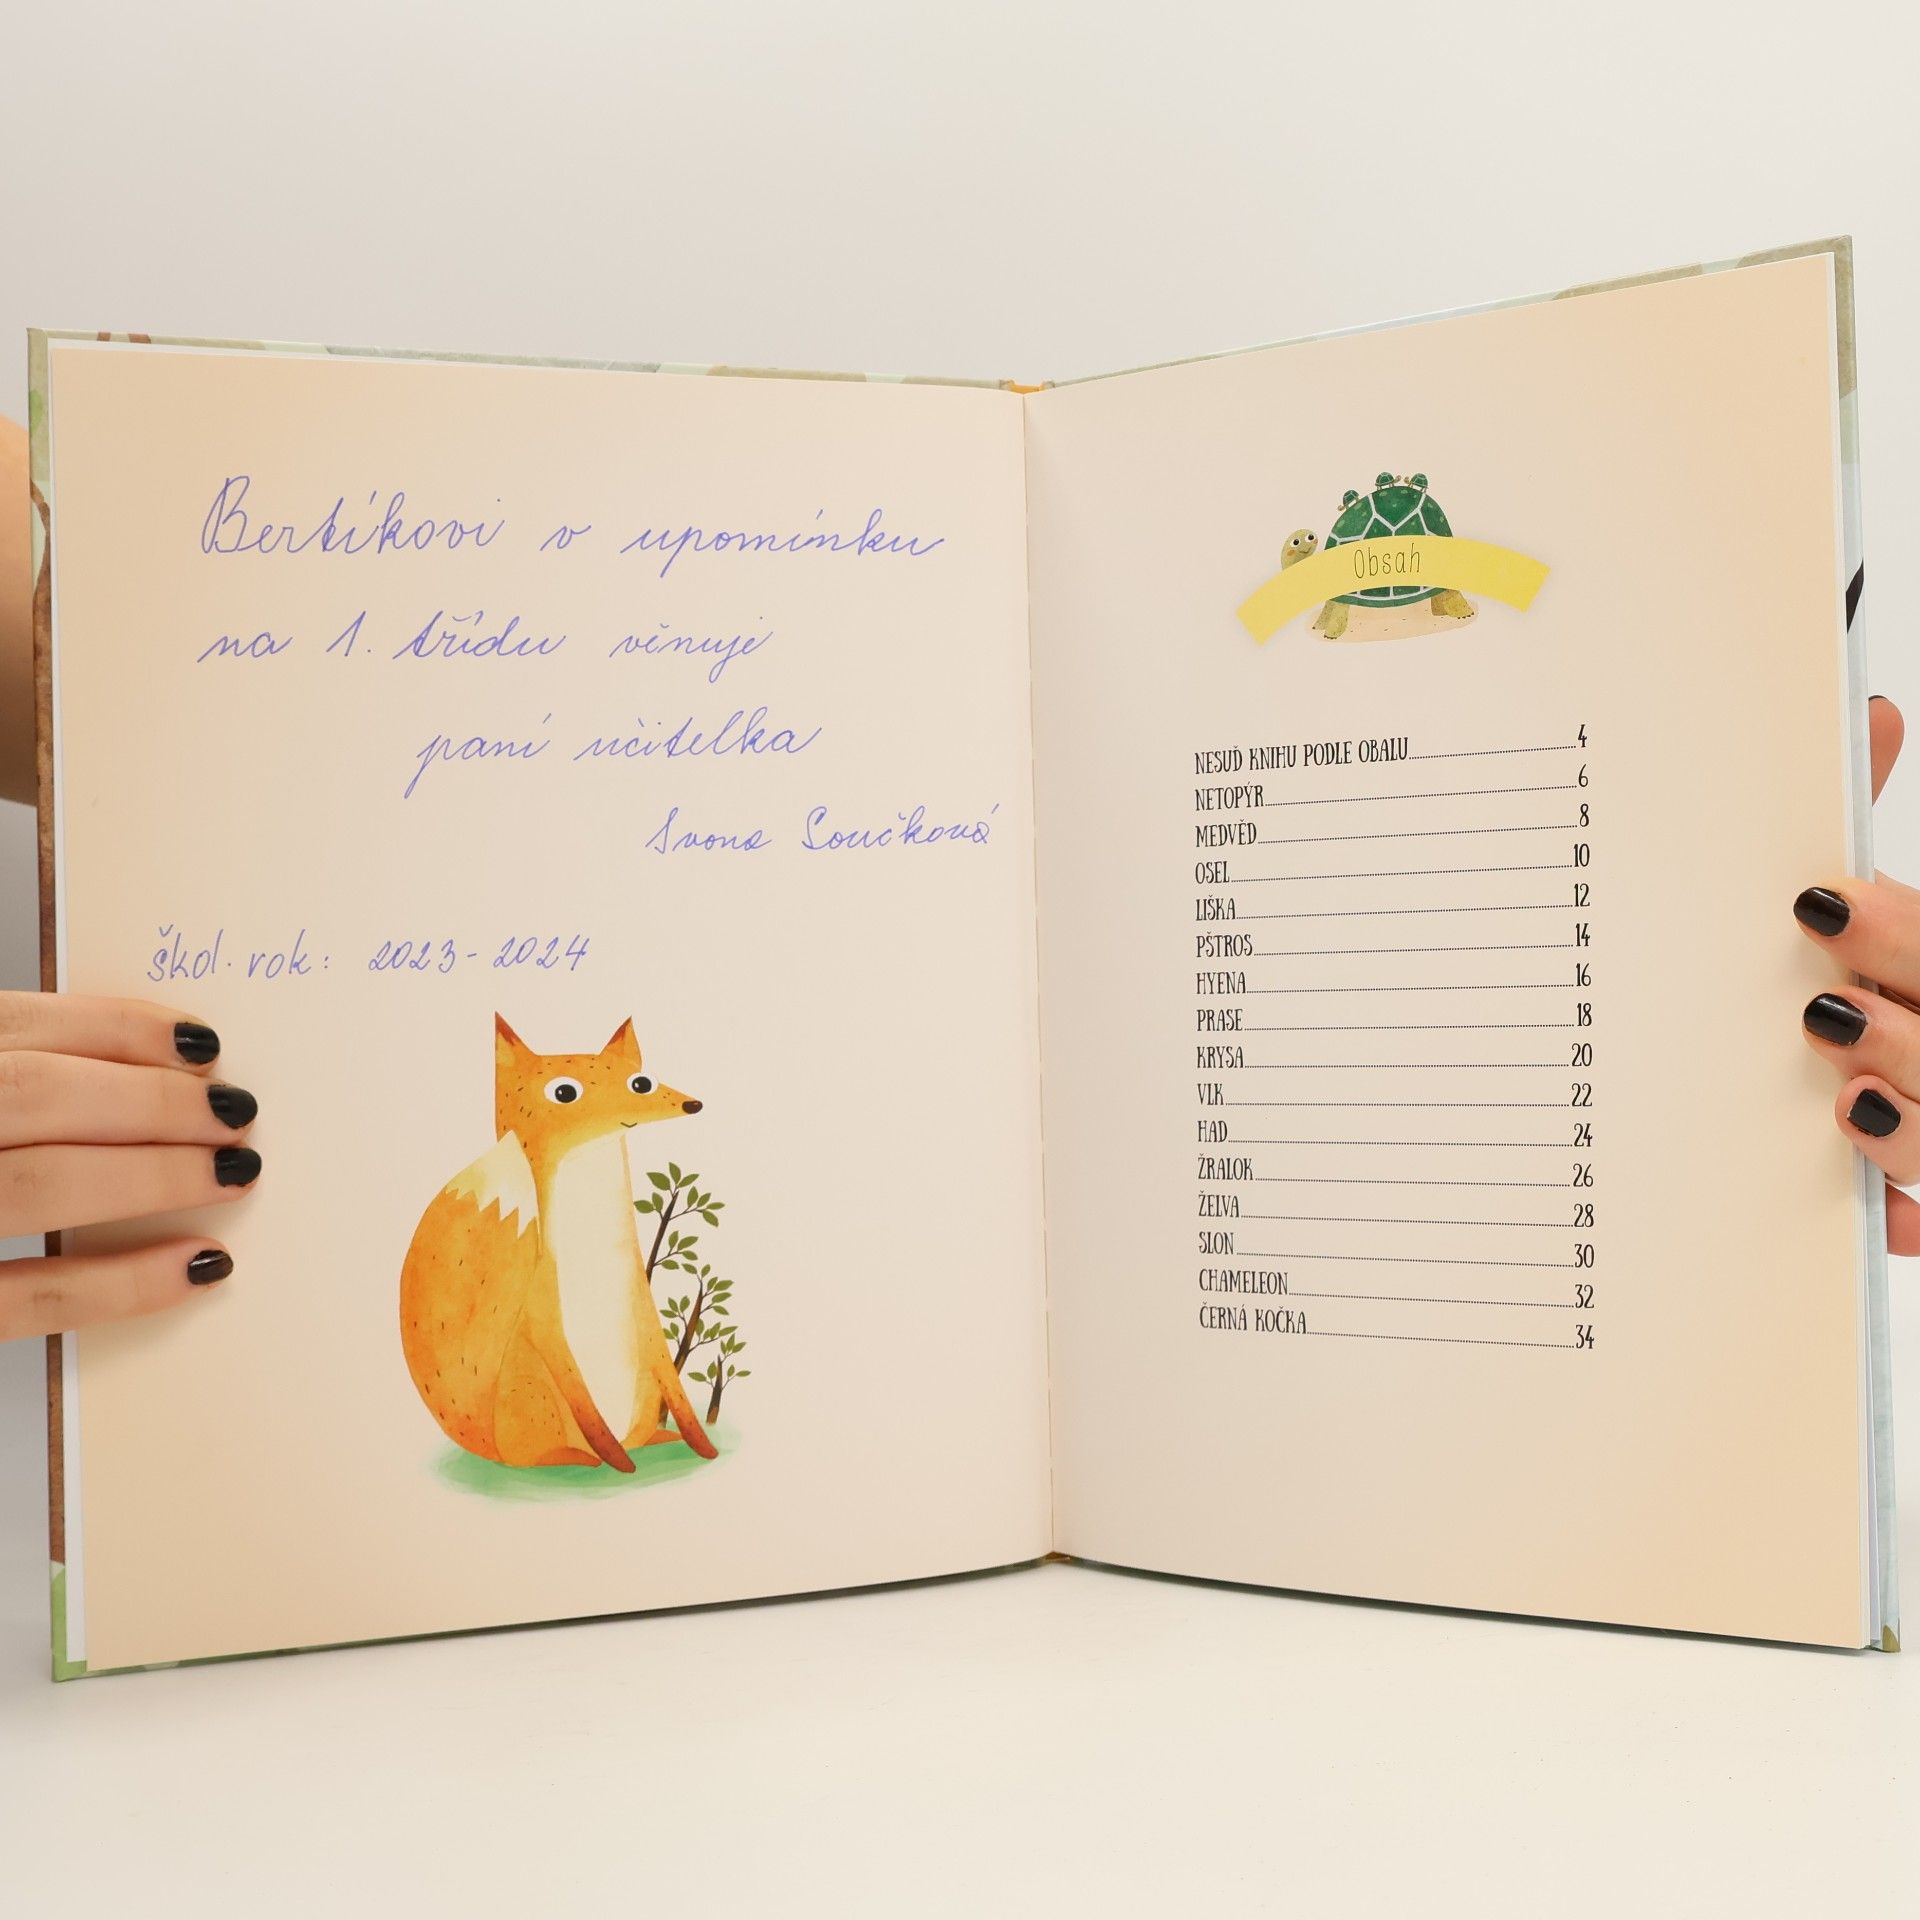 Bertíkovi v upomínku
na 1. třídu věnuje
paní učitelka
Ivona Součková
škol. rok: 2023-2024
Obsah
NESUĎ KNIHU PODLE OBALU 4
NETOPÝR 6
MEDVĚD 8
OSEL 10
LIŠKA 12
PŠTROS 14
HYENA 16
PRASE 18
KRYSA 20
VLK 22
HAD 24
ŽRALOK 26
ŽELVA 28
SLON 30
CHAMELEON 32
ČERNÁ KOČKA 34